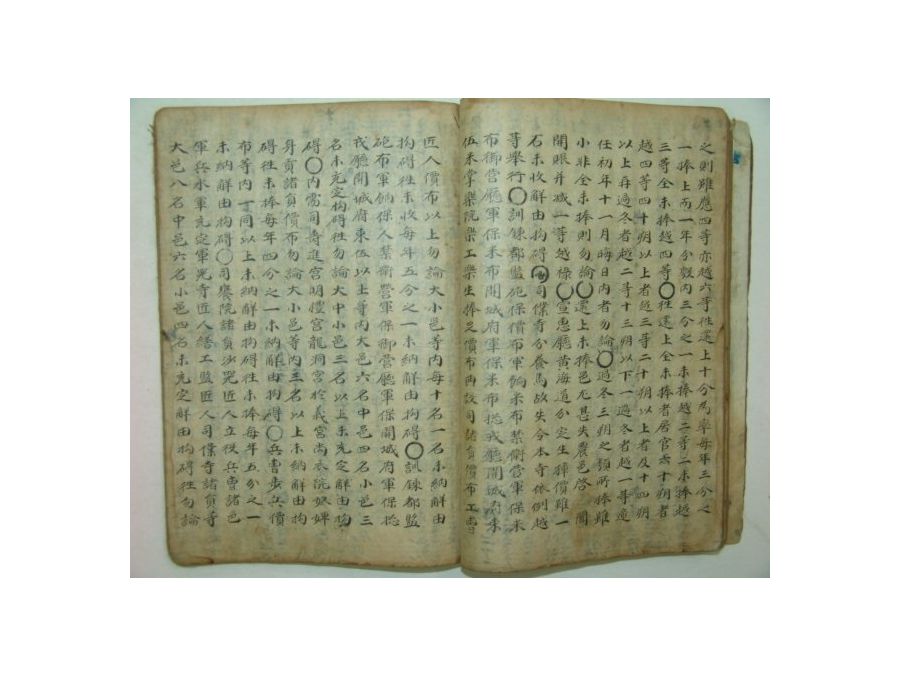 之則雖應四等亦越六等徃還上十分爲率每年三分之
一捧上而一年分數內三分之一未捧越二等二未捧越
三等全未捧越四等○徃還上全未捧者居官六十朔者
越四等四十朔以上者越三等二十朔以上者及十四朔
以上再過冬者越二等十三朔以下一過冬者越一等遞
任初年十一月晦日內者勿論○過冬三朔之類所捧雖
小非全未捧則勿論○還上未捧邑尤甚失農邑啓聞
開眼并减一等越祿○宣惠廳黃海道分定生猉價雖一
石未收解由拘碍○司僕寺分養馬故失令本寺依例越
等擧行○訓鍊都監砲保價布軍餉米布禁衛營軍保米
布御營廳軍保米布開城府軍保米布捴戎廳開城府束
伍米掌樂院樂工樂生捧足價布两設司諸負價布工曹
匠人價布以上勿論大小邑等內每十名一名未納解由
拘碍徃未收每年五分之一未納解由拘碍○訓鍊都監
砲布軍餉保人禁衛營軍保御營廳軍保開城府軍保捴
戎廳開城府束伍以上等內大邑六名中邑四名小邑三
名未充定拘碍徃勿論大中小邑三名以上未充定解由拘
碍○內需司壽進宮明禮宮龍洞宮於義宮尙衣院奴婢
身貢諸負價布勿論大小邑等內三名以上未納解由拘
碍徃未捧每年四分之一未納解由拘碍○兵曹步兵價
布等內一同以上未納解由拘碍徃未捧每年五分之一
未納解由拘碍○司饔院諸負沙器匠人立役兵曹諸邑
軍兵水軍充定軍器寺匠人繕工監匠人司僕寺諸負等
大邑八名中邑六名小邑四名未充定解由拘碍徃勿論